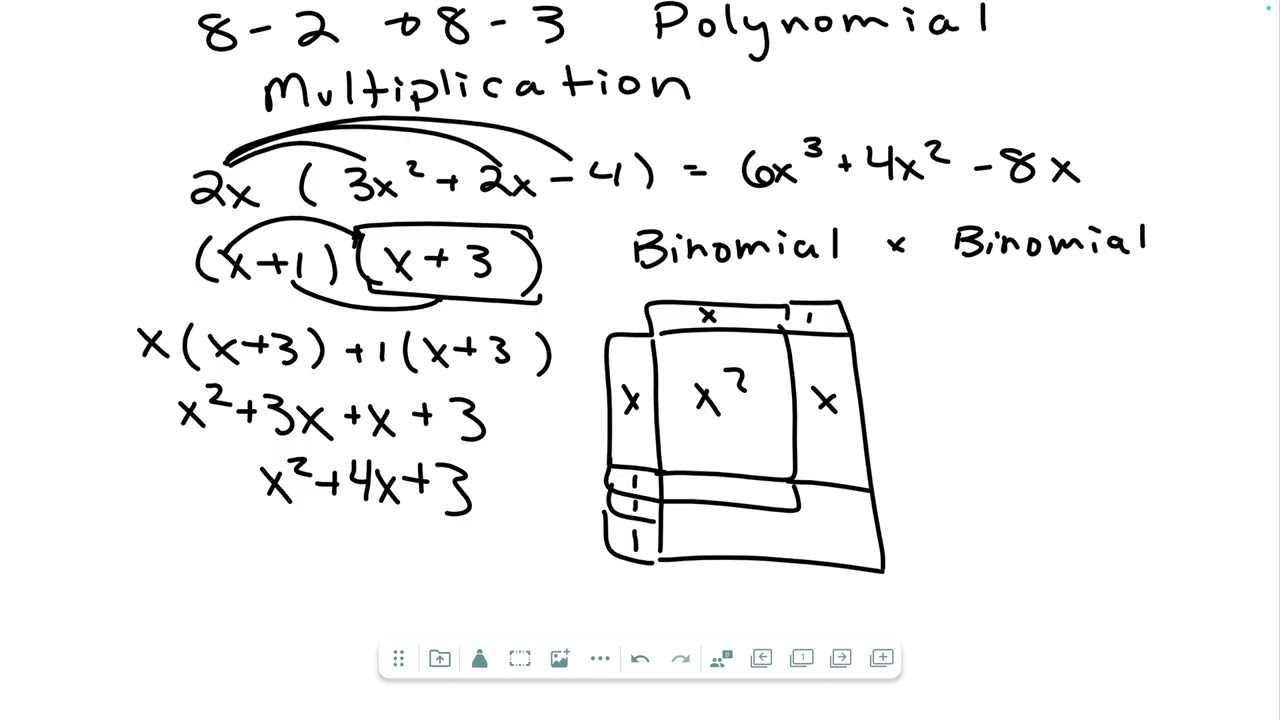 8-2 → 8-3 Polynomial
Multiplication
2x (3x² + 2x - 4) = 6x³ + 4x² - 8x
(x+1)(x+3) Binomial × Binomial
x(x+3) + 1(x+3)
x² + 3x + x + 3
x² + 4x + 3
x 1
x x² x
1
1
1
0
1